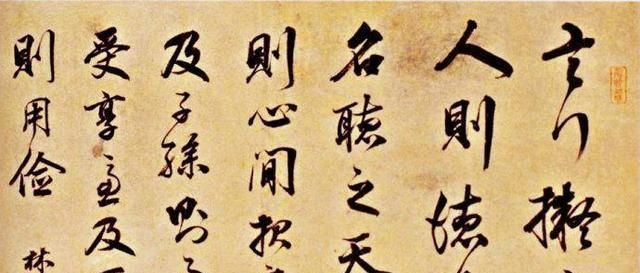 言行擬
人則德
名聽之天
則心閒報
及子孫則
受享慮及
則用儉
林